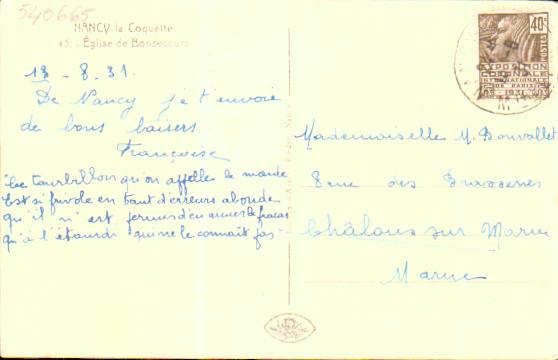 540665
NANCY la Coquette
45. - Église de Bonsecours
13 - 8. 31.
De Nancy je t'envoie
de bons baisers
Françoise
Ce tourbillon qu'on appelle le monde
Est si frivole en tant d'erreurs abonde
qu'il n'est permis d'en aimer le fracas
qu'à l'étourdi qui ne le connaît pas -
40c
POSTES
EXPOSITION
COLONIALE
INTERNATIONALE
DE PARIS
1931
Mademoiselle M. Bouvallet
8 rue des Brasseries
Châlons sur Marne
Marne